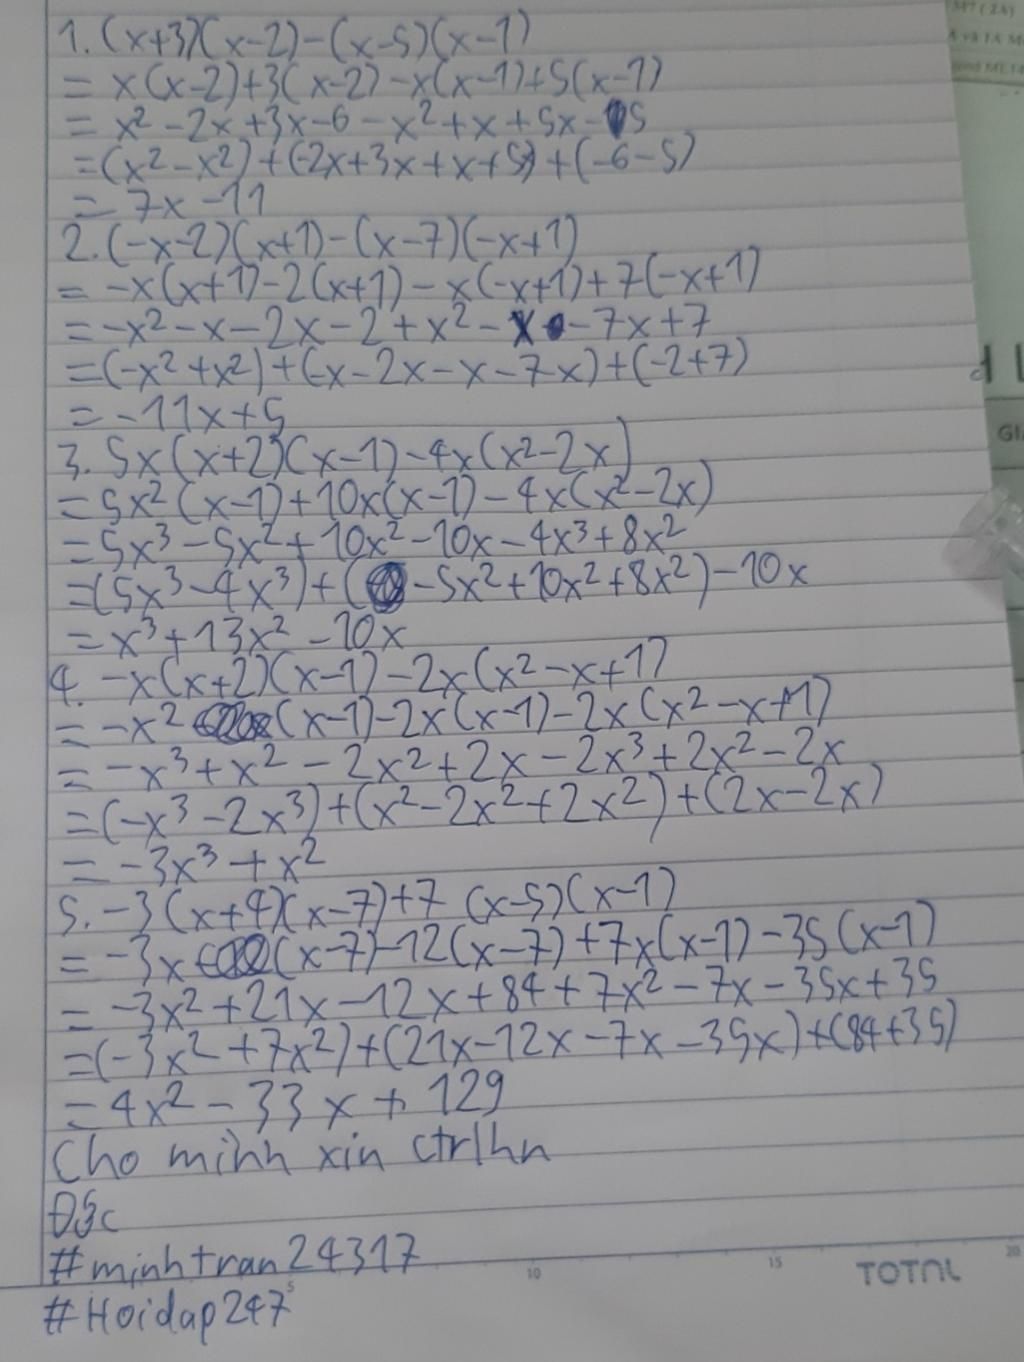 1. (x+3)(x-2)-(x-5)(x-1)
= x(x-2)+3(x-2)-x(x-1)+5(x-1)
= x²-2x+3x-6-x²+x+5x-5
=(x²-x²)+(-2x+3x+x+5)+(-6-5)
= 7x-11
2. (-x-2)(x+1)-(x-7)(-x+1)
= -x(x+1)-2(x+1)-x(-x+1)+7(-x+1)
= -x²-x-2x-2+x²-x-7x+7
=(-x²+x²)+(-x-2x-x-7x)+(-2+7)
= -11x+5
3. 5x(x+2)(x-1)-4x(x²-2x)
= 5x²(x-1)+10x(x-1)-4x(x²-2x)
= 5x³-5x²+10x²-10x-4x³+8x²
=(5x³-4x³)+(-5x²+10x²+8x²)-10x
= x³+13x²-10x
4. -x(x+2)(x-1)-2x(x²-x+1)
= -x²(x-1)-2x(x-1)-2x(x²-x+1)
= -x³+x²-2x²+2x-2x³+2x²-2x
=(-x³-2x³)+(x²-2x²+2x²)+(2x-2x)
= -3x³+x²
5. -3(x+4)(x-7)+7(x-5)(x-1)
= -3x(x-7)-12(x-7)+7x(x-1)-35(x-1)
= -3x²+21x-12x+84+7x²-7x-35x+35
=(-3x²+7x²)+(21x-12x-7x-35x)+(84+35)
= 4x²-33x+129
Cho mình xin ctrlhn
#minhtran24317
#Hoidap247
5 10 15 20
TOTAL
GIÁ